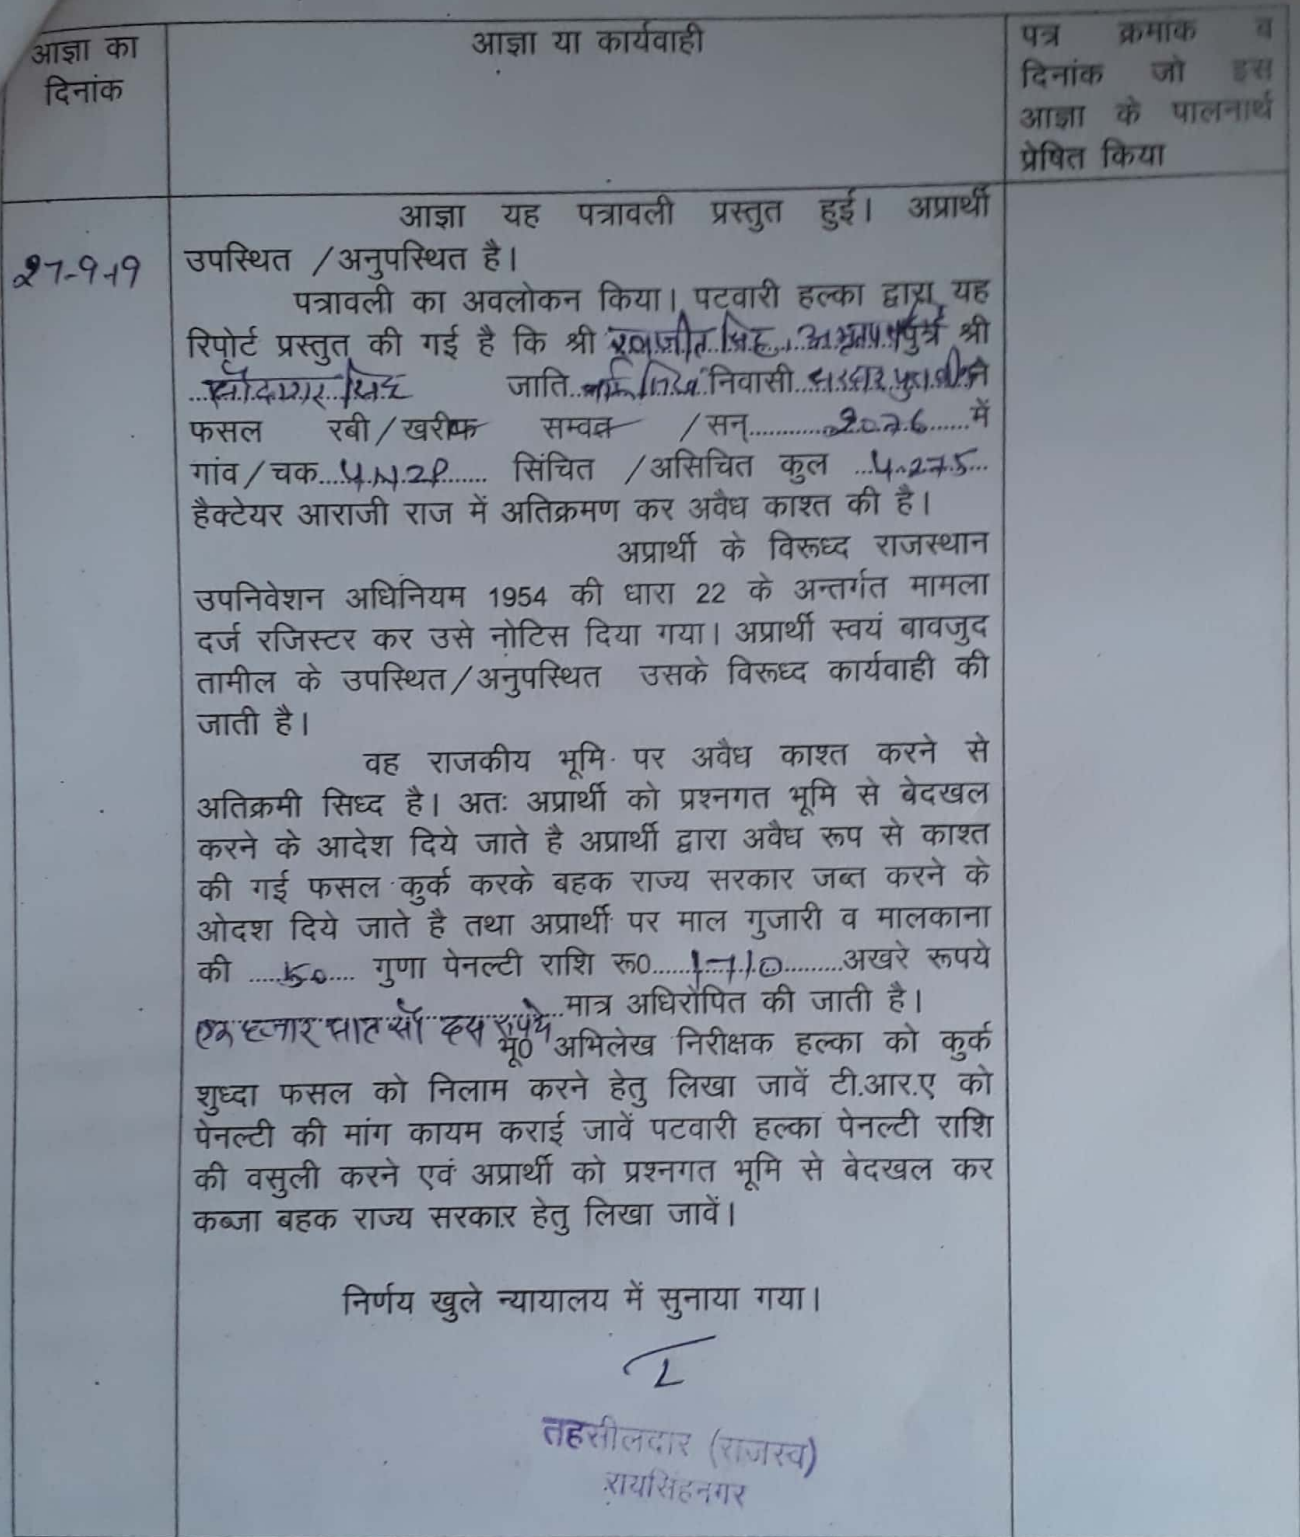 आज्ञा का
दिनांक
आज्ञा या कार्यवाही
पत्र क्रमांक व
दिनांक जो इस
आज्ञा के पालनार्थ
प्रेषित किया
27-9-19
आज्ञा यह पत्रावली प्रस्तुत हुई। अप्रार्थी
उपस्थित /अनुपस्थित है।
पत्रावली का अवलोकन किया। पटवारी हल्का द्वारा यह
रिपोर्ट प्रस्तुत की गई है कि श्री सिंह पुत्र श्री
सिंह जाति निवासी ने
फसल रबी/खरीफ सम्वत /सन्............2076......में
गांव/चक सिंचित /असिचित कुल ...4.275...
हैक्टेयर आराजी राज में अतिक्रमण कर अवैध काश्त की है।
अप्रार्थी के विरूध्द राजस्थान
उपनिवेशन अधिनियम 1954 की धारा 22 के अन्तर्गत मामला
दर्ज रजिस्टर कर उसे नोटिस दिया गया। अप्रार्थी स्वयं बावजुद
तामील के उपस्थित/अनुपस्थित उसके विरूध्द कार्यवाही की
जाती है।
वह राजकीय भूमि पर अवैध काश्त करने से
अतिक्रमी सिध्द है। अतः अप्रार्थी को प्रश्नगत भूमि से बेदखल
करने के आदेश दिये जाते है अप्रार्थी द्वारा अवैध रूप से काश्त
की गई फसल कुर्क करके बहक राज्य सरकार जब्त करने के
ओदश दिये जाते है तथा अप्रार्थी पर माल गुजारी व मालकाना
की .....50.... गुणा पेनल्टी राशि रू0.....1710.........अखरे रूपये
एक हजार सात सौ दस रुपये मात्र अधिरोपित की जाती है।
भू0 अभिलेख निरीक्षक हल्का को कुर्क
शुध्दा फसल को निलाम करने हेतु लिखा जावें टी.आर.ए को
पेनल्टी की मांग कायम कराई जावें पटवारी हल्का पेनल्टी राशि
की वसुली करने एवं अप्रार्थी को प्रश्नगत भूमि से बेदखल कर
कब्जा बहक राज्य सरकार हेतु लिखा जावें।
निर्णय खुले न्यायालय में सुनाया गया।
तहसीलदार (राजस्व)
रायसिंहनगर